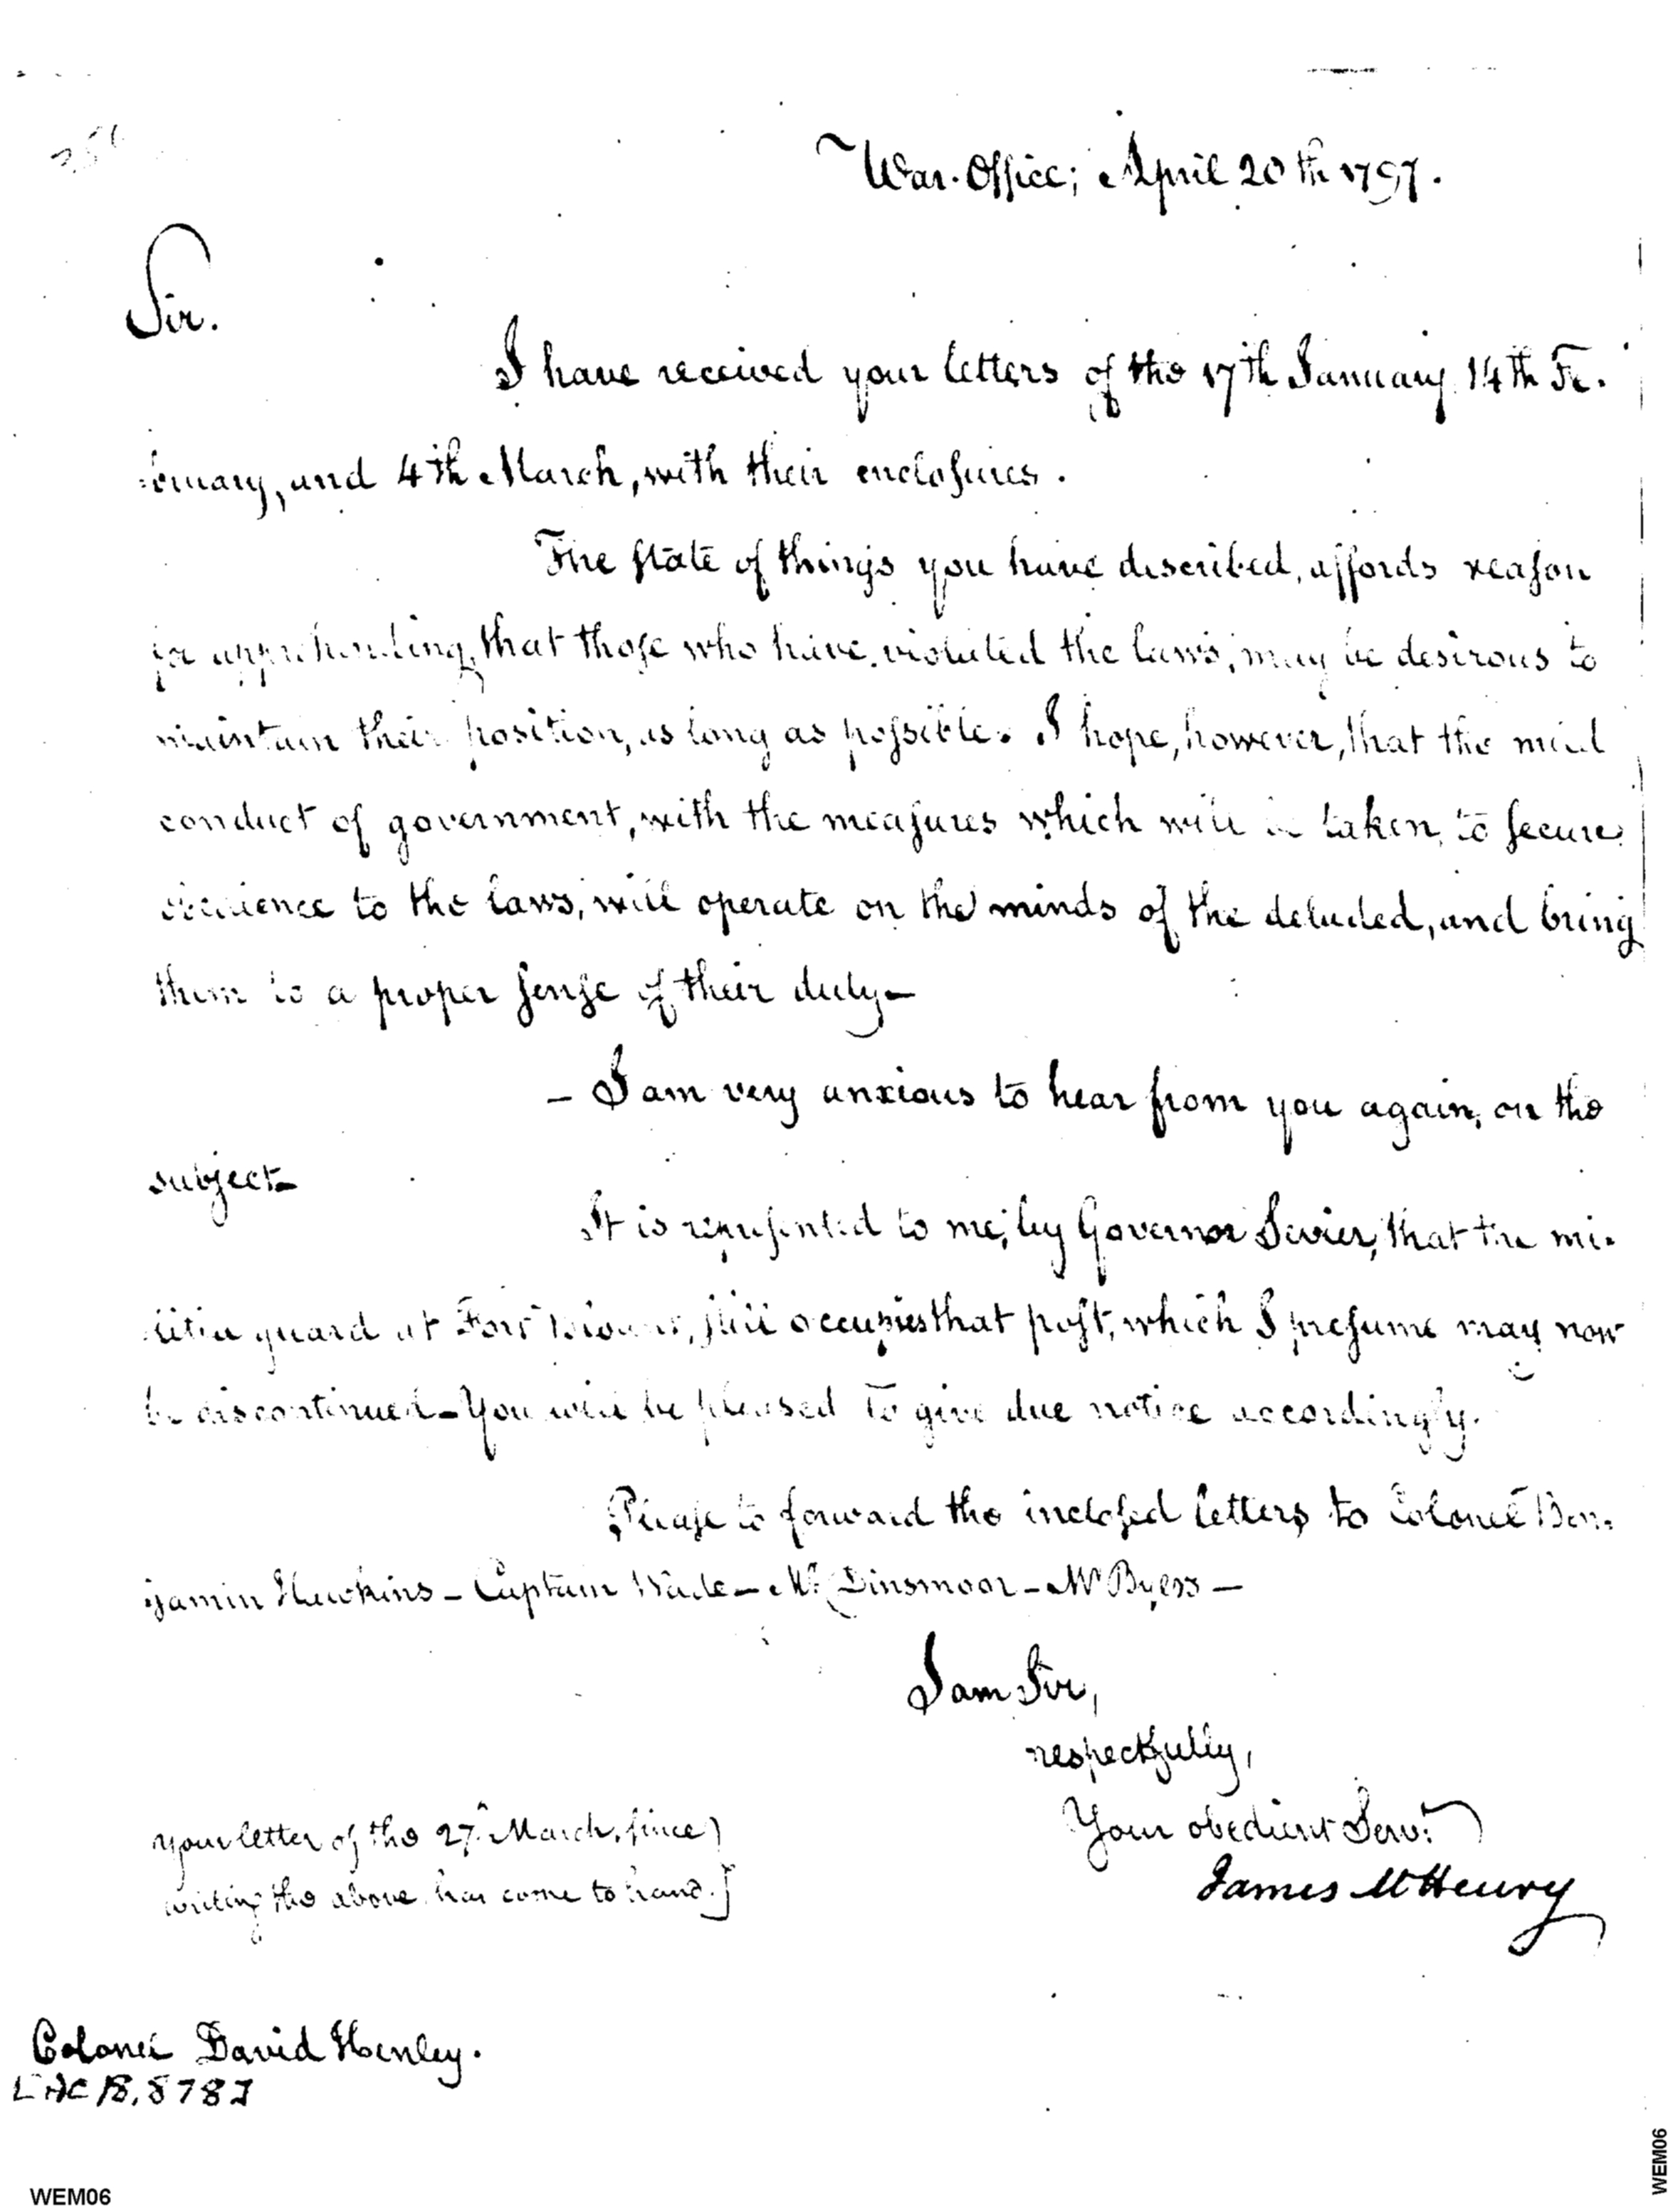 War Office; April 20th 1797.
Sir.
I have received your letters of the 17th January 14th Fe.
:bruary, and 4th March, with their enclosures.
The state of things you have described, affords reason
for apprehending, that those who have violated the laws, may be desirous to
maintain their position, as long as possible. I hope, however, that the mild
conduct of government, with the measures which will be taken, to secure
obedience to the laws, will operate on the minds of the deluded, and bring
them to a proper sense of their duty—
— I am very anxious to hear from you again, on the
subject—
It is represented to me, by Governor Sevier, that the mi.
litia guard at Fort still occupies that post, which I presume may now
be discontinued — You will be pleased to give due notice accordingly.
Please to forward the inclosed letters to Colonel Ben:
:jamin Hawkins — Captain Wade — Mr Dinsmoor — Mr Byers —
I am Sir,
respectfully,
Your obedient Servt
James McHenry
your letter of the 27th March, since
writing the above has come to hand.]
Colonel David Henley.
WEM06
WEM06